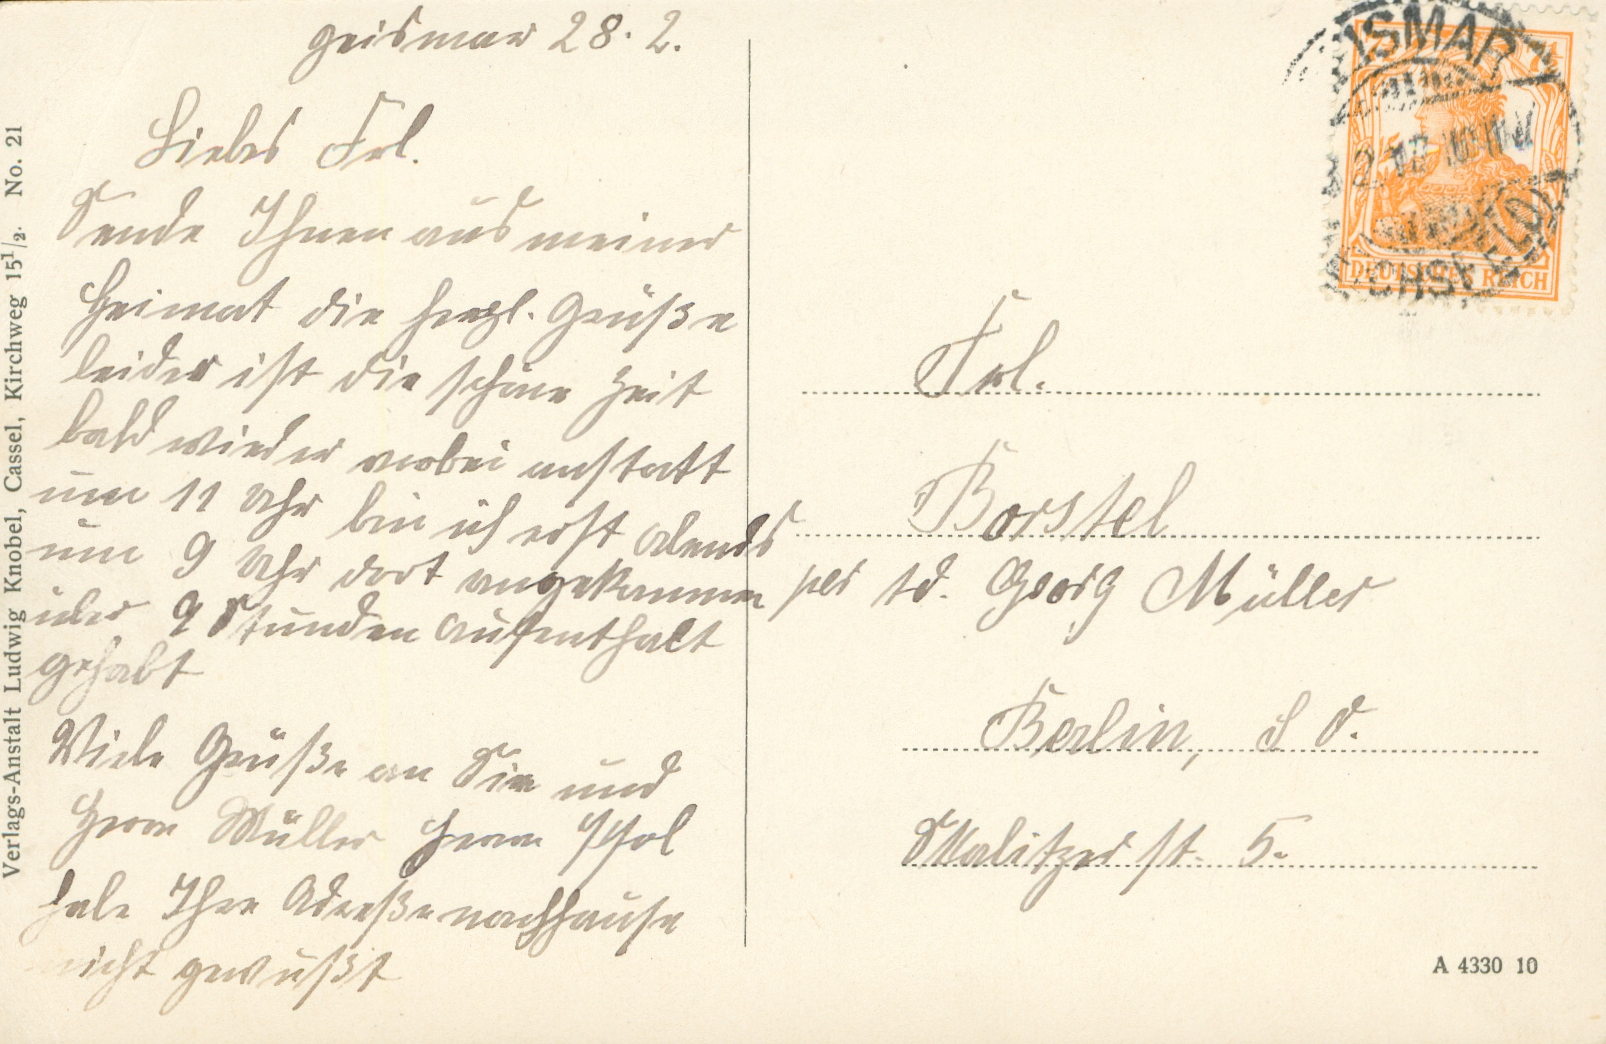 Geismar 28. 2.
Liebes Frl.
Sende Ihnen aus meiner
Heimat die herzl. Grüße
leider ist die schöne Zeit
bald wieder vorbei anstatt
um 11 Uhr bin ich erst abends
um 9 Uhr dort angekommen
über 9 Stunden Aufenthalt
gehabt
Viele Grüße an Sie und
Herrn Müller Herrn
habe Ihre Adreße nachhause
nicht gewußt
Verlags-Anstalt Ludwig Knobel, Cassel, Kirchweg 15 1/2. No. 21
GEISMAR
EICHSFELD
DEUTSCHES REICH
Frl.
Borstel
per Ad. Georg Müller
Berlin, S O.
Skalitzer st. 5.
A 4330 10